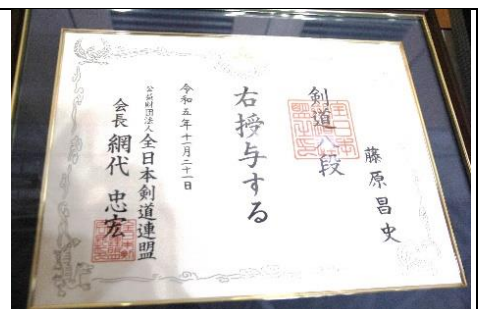 藤原昌史
剣道八段
右授与する
令和五年十一月二十一日
公益財団法人全日本剣道連盟
会長 網代 忠宏